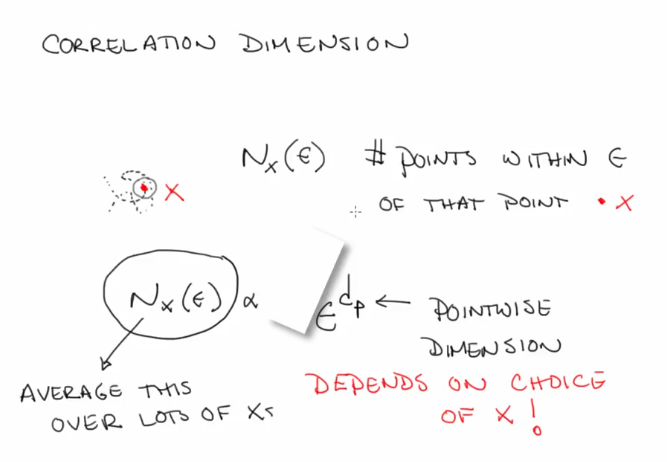 CORRELATION DIMENSION
Nx(ϵ) # POINTS WITHIN ϵ
OF THAT POINT • X
X
Nx(ϵ) α ϵ^dp ← POINTWISE
DIMENSION
AVERAGE THIS
OVER LOTS OF Xs
DEPENDS ON CHOICE
OF X!